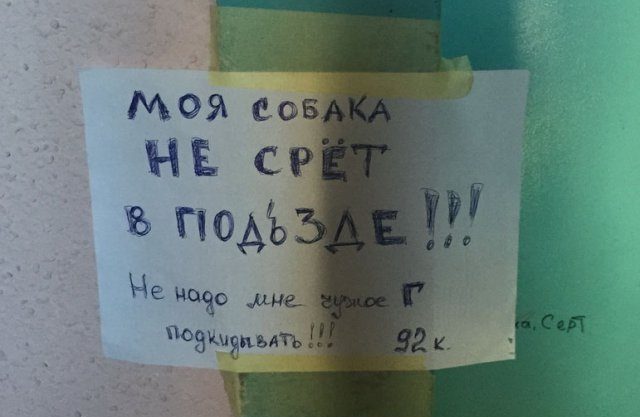 МОЯ СОБАКА
НЕ СРЁТ
В ПОДЪЗДЕ!!!
Не надо мне чужое Г
подкидывать!!! 92 к.
а, Серт